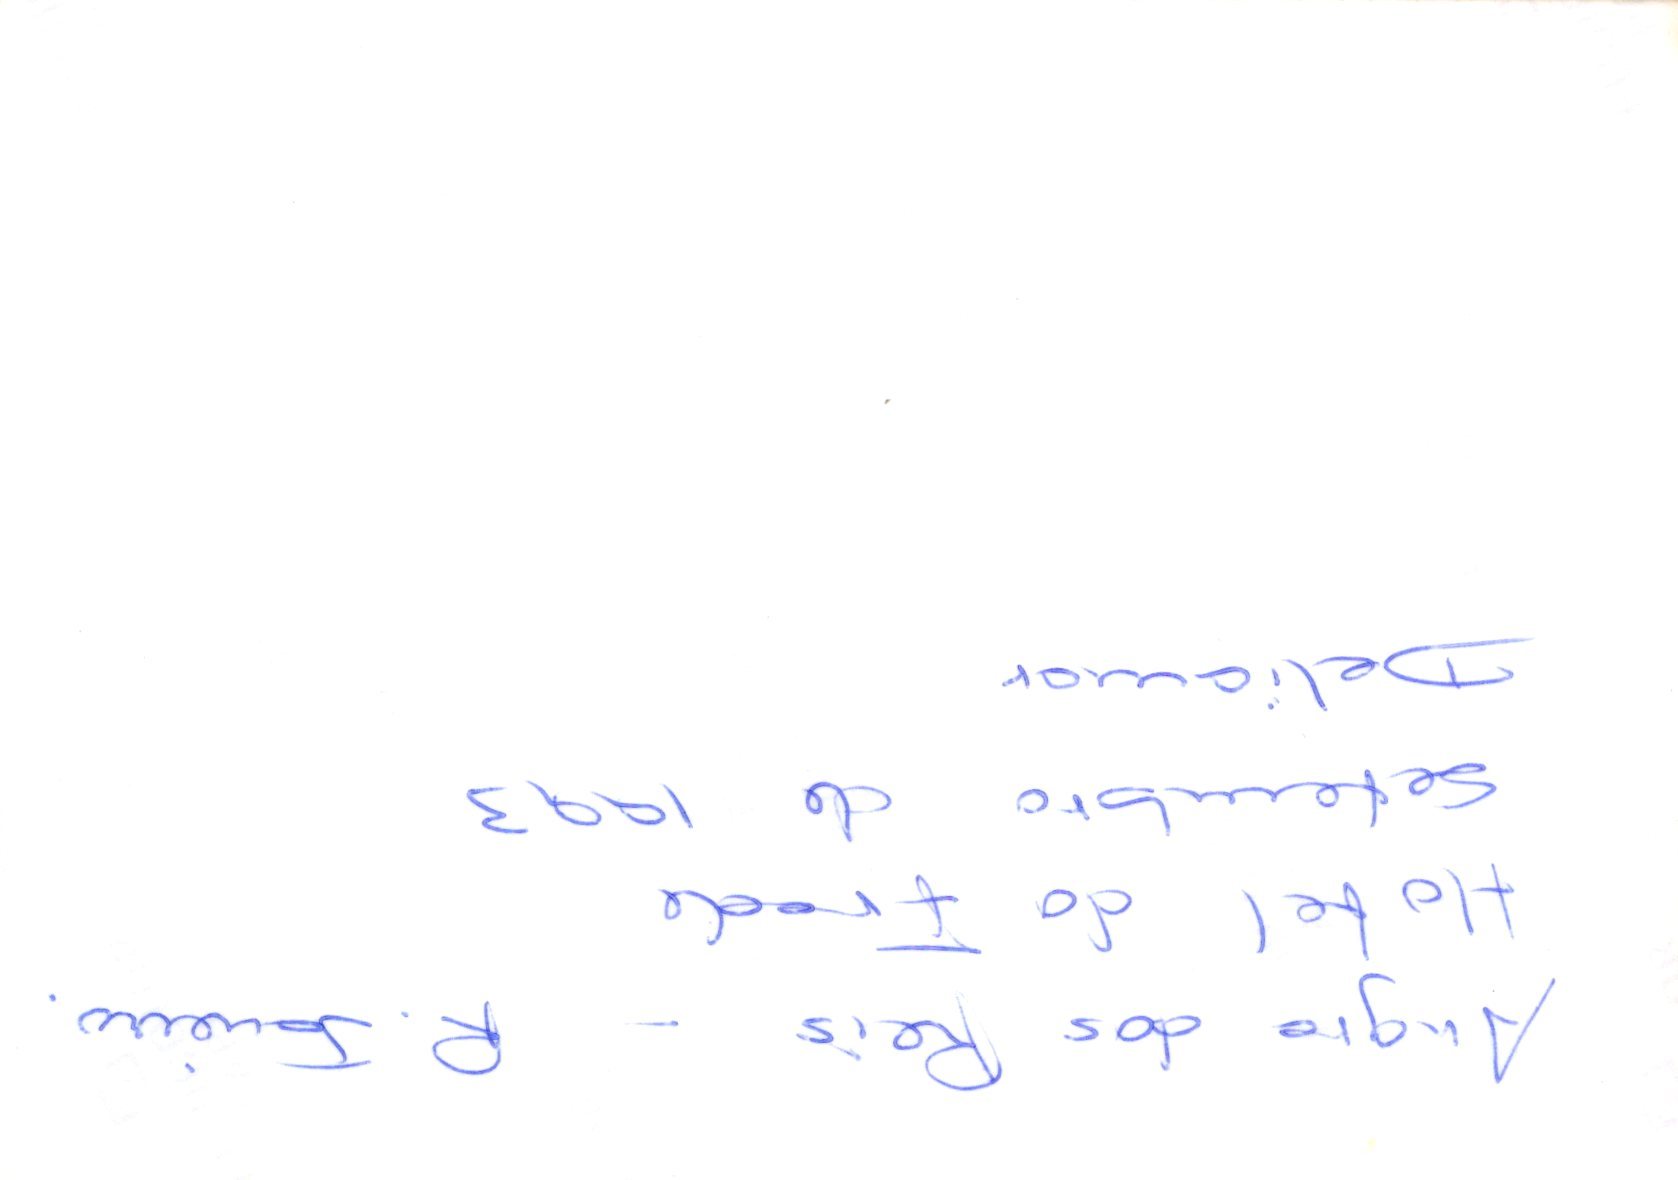 Angra dos Reis - R. Janeiro.
Hotel do Frade
Setembro de 1993
Delicamar